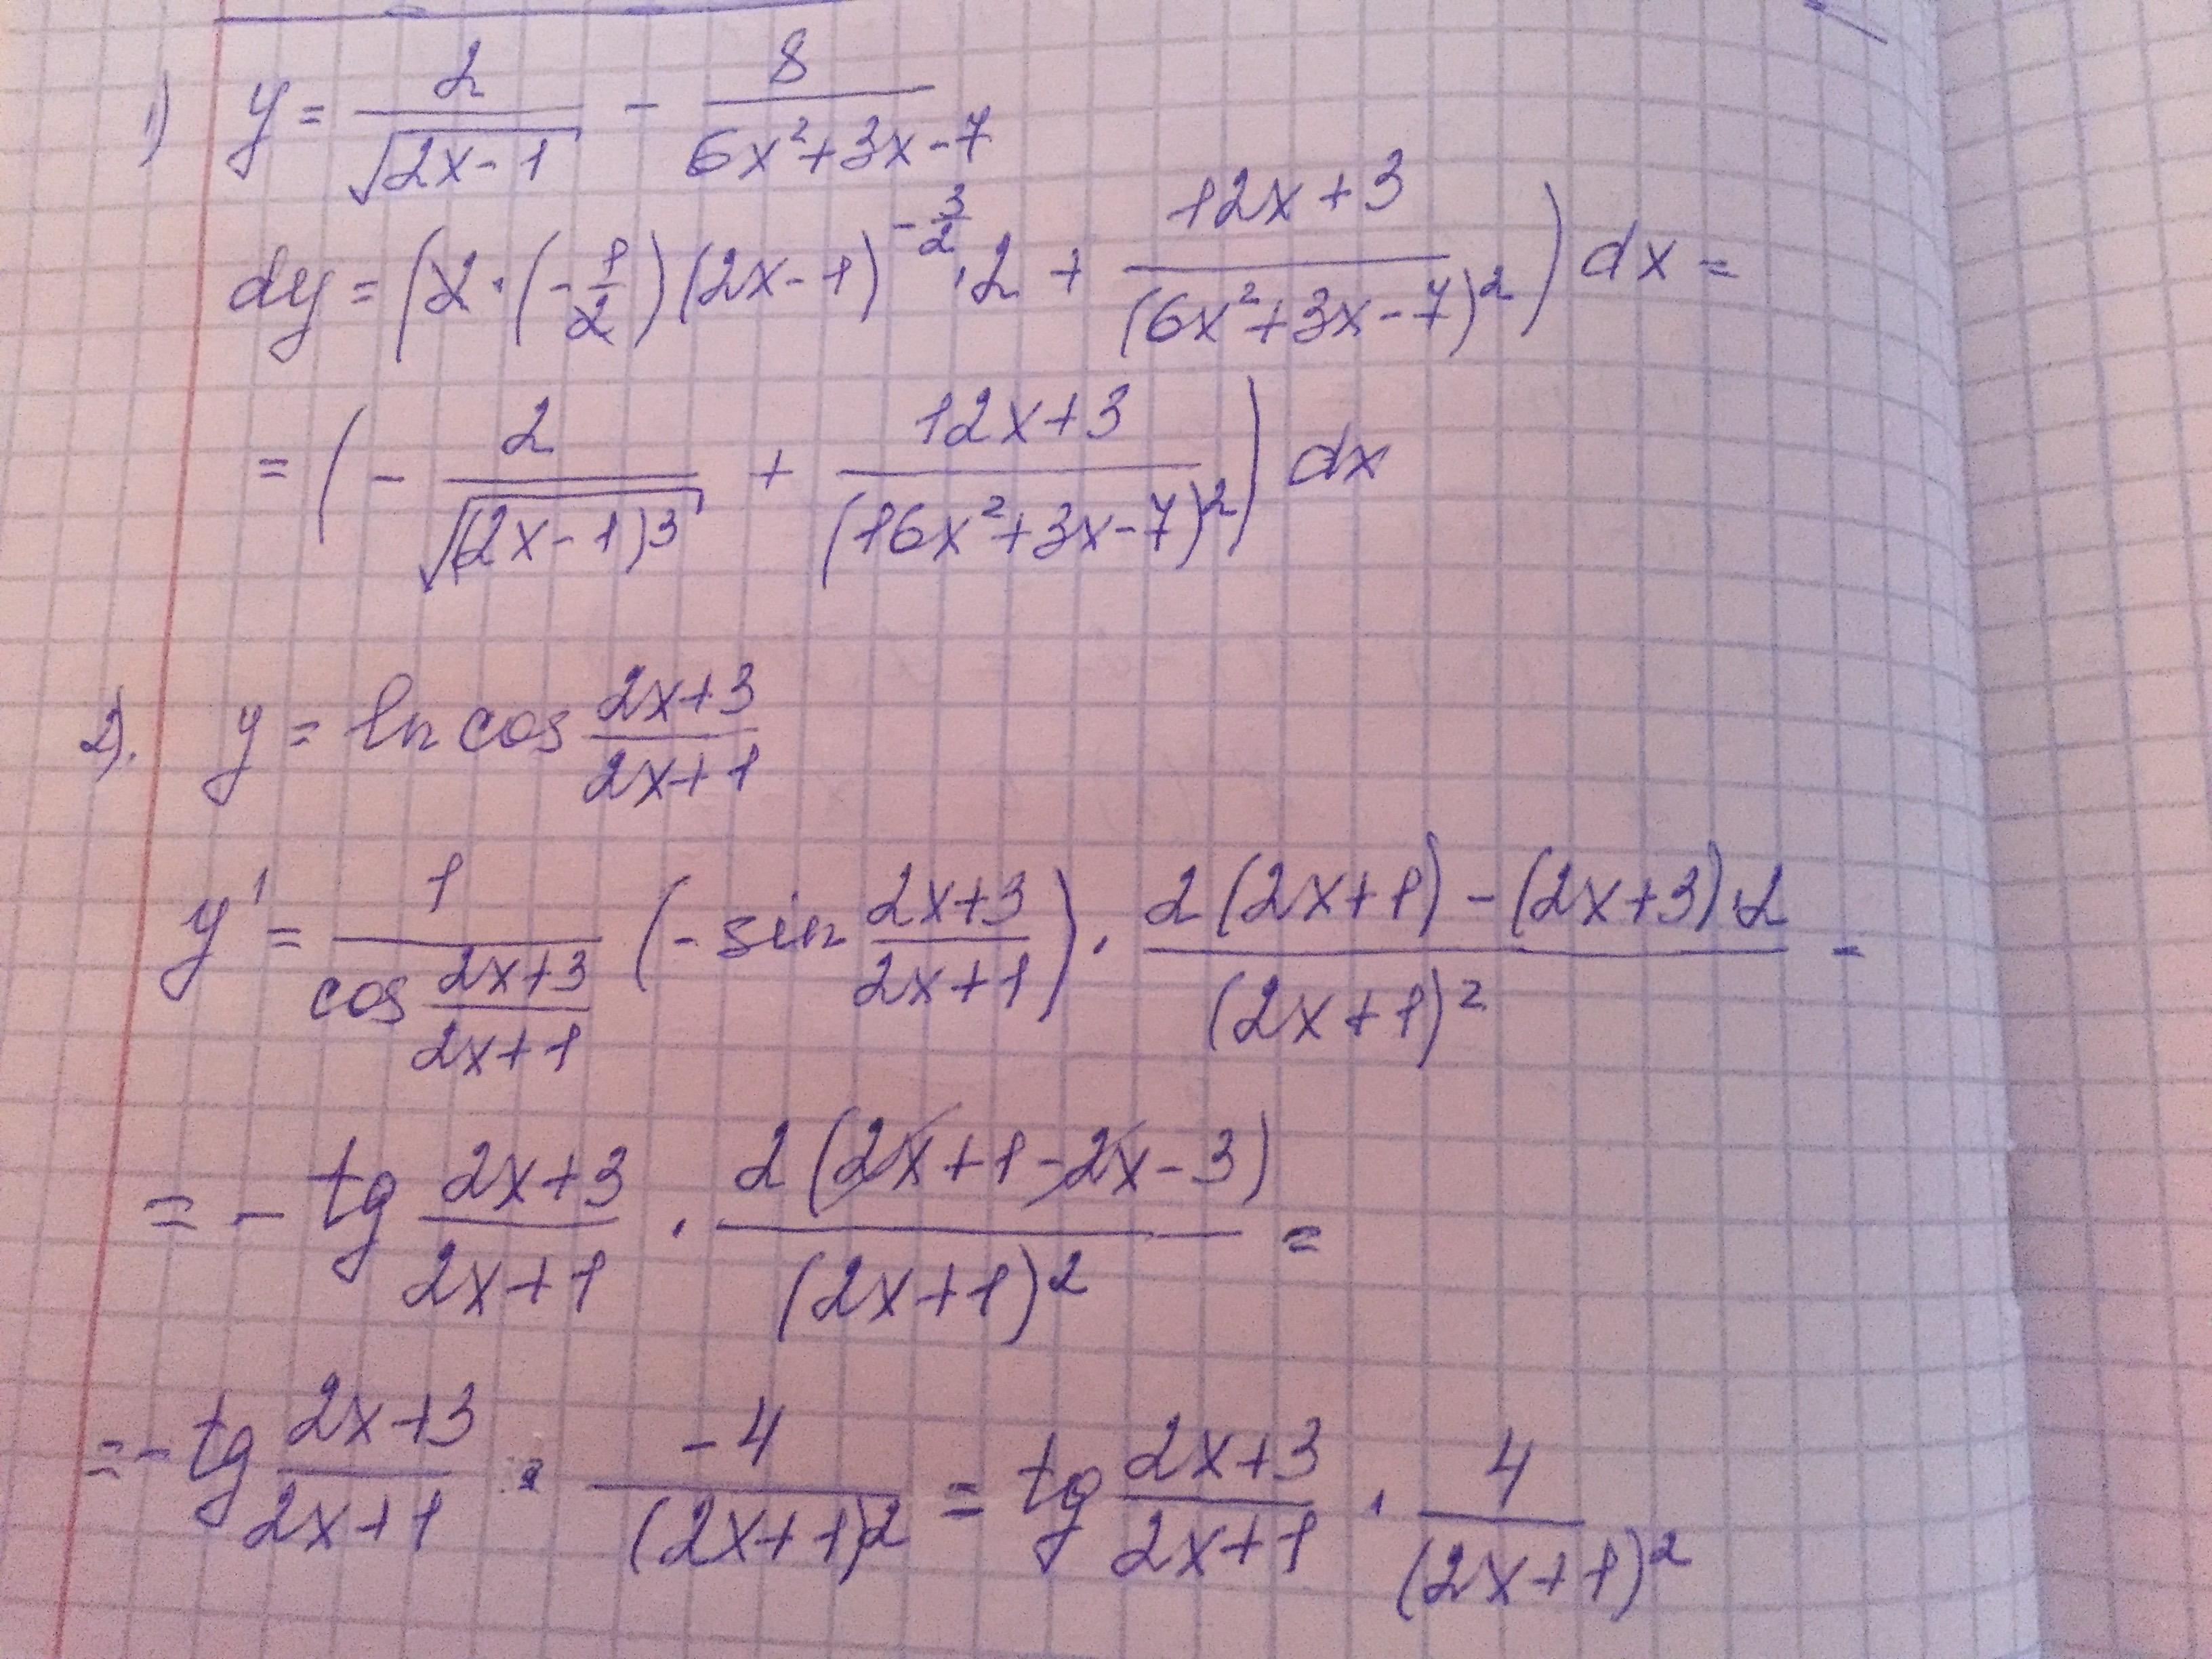 1) y = 2/√(2x-1) - 8/(6x²+3x-7)
dy = (2·(-1/2)(2x-1)^(-3/2)·2 + (12x+3)/(6x²+3x-7)²)dx =
= (-2/√((2x-1)3) + (12x+3)/(16x²+3x-7)²)dx
2). y = ln cos (2x+3)/(2x+1)
y' = 1/(cos (2x+3)/(2x+1)) (-sin (2x+3)/(2x+1)) · (2(2x+1)-(2x+3)·2)/(2x+1)² =
= - tg (2x+3)/(2x+1) · (2(2x+1-2x-3))/(2x+1)² =
= - tg (2x+3)/(2x+1) · (-4)/(2x+1)² = tg (2x+3)/(2x+1) · 4/(2x+1)²